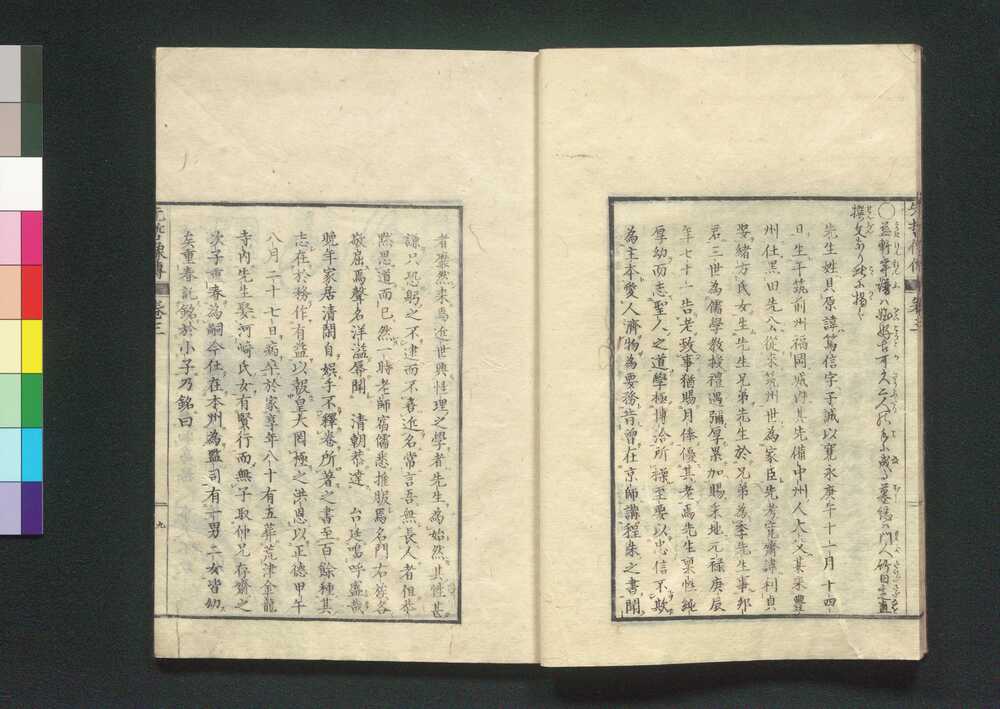 先生姓貝原諱篤信字子誠以寛永庚午十一月十四
日生于筑前州福岡城内其先備中州人大父某來豐
州仕黒田先公從來筑州世為家臣先考寛齋諱利貞
娶緒方氏女生先生兄弟先生於兄弟為季先生事邦
君三世為儒學教授禮遇彌厚累加賜采地元禄庚辰
年七十一告老致事猶賜月俸優其老焉先生稟性純
厚幼而志聖人之道學極博洽所操至要以忠信不欺
為主本愛人濟物為要務昔曾在京師講程朱之書聞
者翕然來焉近世興性理之學者先生為始然其性甚
謙只恐躬之不逮而不喜近名常言吾無長人者但恭
黙思道而已然一時老師宿儒悉推服焉名門右族各
敬屈焉聲名洋溢辱聞 清朝恭達 台廷嗚呼盛哉
晩年家居清閑自娯手不釋卷所著之書至百餘種其
志在於務作有益以報皇天罔極之洪恩以正德甲午
八月二十七日病卒於家享年八十有五葬荒津金龍
寺内先生娶河崎氏女有賢行而無子取仲兄存齋之
次子重春為嗣今仕在本州為監司有一男二女皆幼
矣重春託銘於小子乃銘曰
卷三
九